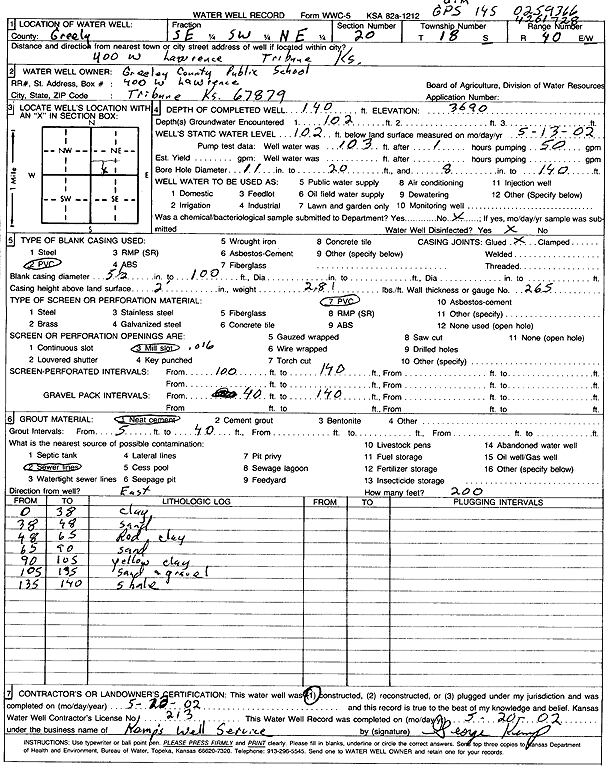 UTM
WATER WELL RECORD Form WWC-5 KSA 82a-1212 GPS 145 0259766
4261728
1 LOCATION OF WATER WELL: Fraction Section Number Township Number Range Number
County: Greely SE ¼ SW ¼ NE ¼ 20 T 18 S R 40 E/W
Distance and direction from nearest town or city street address of well if located within city?
400 W Lawrence Tribune Ks.
2 WATER WELL OWNER: Greeley County Public School
RR#, St. Address, Box # : 400 W Lawrence Board of Agriculture, Division of Water Resources
City, State, ZIP Code : Tribune Ks. 67879 Application Number:
3 LOCATE WELL'S LOCATION WITH AN "X" IN SECTION BOX:
N
NW NE
W E
SW SE
S
1 Mile
4 DEPTH OF COMPLETED WELL 140 ft. ELEVATION: 3690
Depth(s) Groundwater Encountered 1. 102 ft. 2. ft. 3. ft.
WELL'S STATIC WATER LEVEL 102 ft. below land surface measured on mo/day/yr 5-13-02
Pump test data: Well water was 103 ft. after 1 hours pumping 50 gpm
Est. Yield gpm: Well water was ft. after hours pumping gpm
Bore Hole Diameter 11 in. to 20 ft., and 8 in. to 140 ft.
WELL WATER TO BE USED AS: 5 Public water supply 8 Air conditioning 11 Injection well
1 Domestic 3 Feedlot 6 Oil field water supply 9 Dewatering 12 Other (Specify below)
2 Irrigation 4 Industrial 7 Lawn and garden only 10 Monitoring well
Was a chemical/bacteriological sample submitted to Department? Yes No X ; If yes, mo/day/yr sample was submitted
Water Well Disinfected? Yes X No
5 TYPE OF BLANK CASING USED: 5 Wrought iron 8 Concrete tile CASING JOINTS: Glued X Clamped
1 Steel 3 RMP (SR) 6 Asbestos-Cement 9 Other (specify below) Welded
2 PVC 4 ABS 7 Fiberglass Threaded
Blank casing diameter 5 1/2 in. to 100 ft., Dia in. to ft., Dia in. to ft.
Casing height above land surface 2 in., weight 2.81 lbs./ft. Wall thickness or gauge No. .265
TYPE OF SCREEN OR PERFORATION MATERIAL: 7 PVC 10 Asbestos-cement
1 Steel 3 Stainless steel 5 Fiberglass 8 RMP (SR) 11 Other (specify)
2 Brass 4 Galvanized steel 6 Concrete tile 9 ABS 12 None used (open hole)
SCREEN OR PERFORATION OPENINGS ARE: 5 Gauzed wrapped 8 Saw cut 11 None (open hole)
1 Continuous slot 3 Mill slot .016 6 Wire wrapped 9 Drilled holes
2 Louvered shutter 4 Key punched 7 Torch cut 10 Other (specify)
SCREEN-PERFORATED INTERVALS: From 100 ft. to 140 ft., From ft. to ft.
From ft. to ft., From ft. to ft.
GRAVEL PACK INTERVALS: From 40 ft. to 140 ft., From ft. to ft.
From ft. to ft., From ft. to ft.
6 GROUT MATERIAL: 1 Neat cement 2 Cement grout 3 Bentonite 4 Other
Grout Intervals: From 5 ft. to 40 ft., From ft. to ft., From ft. to ft.
What is the nearest source of possible contamination: 10 Livestock pens 14 Abandoned water well
1 Septic tank 4 Lateral lines 7 Pit privy 11 Fuel storage 15 Oil well/Gas well
2 Sewer lines 5 Cess pool 8 Sewage lagoon 12 Fertilizer storage 16 Other (specify below)
3 Watertight sewer lines 6 Seepage pit 9 Feedyard 13 Insecticide storage
Direction from well? East How many feet? 200
FROM TO LITHOLOGIC LOG FROM TO PLUGGING INTERVALS
0 38 clay
38 48 sand
48 65 Rod, clay
65 90 sand
90 105 yellow clay
105 135 sand & gravel
135 140 shale
7 CONTRACTOR'S OR LANDOWNER'S CERTIFICATION: This water well was (1) constructed, (2) reconstructed, or (3) plugged under my jurisdiction and was
completed on (mo/day/year) 5-20-02 and this record is true to the best of my knowledge and belief. Kansas
Water Well Contractor's License No. 213 This Water Well Record was completed on (mo/day/yr) 5-20-02
under the business name of Kemps Well Service by (signature) George Kemp
INSTRUCTIONS: Use typewriter or ball point pen. PLEASE PRESS FIRMLY and PRINT clearly. Please fill in blanks, underline or circle the correct answers. Send top three copies to Kansas Department
of Health and Environment, Bureau of Water, Topeka, Kansas 66620-7320. Telephone: 913-296-5545. Send one to WATER WELL OWNER and retain one for your records.